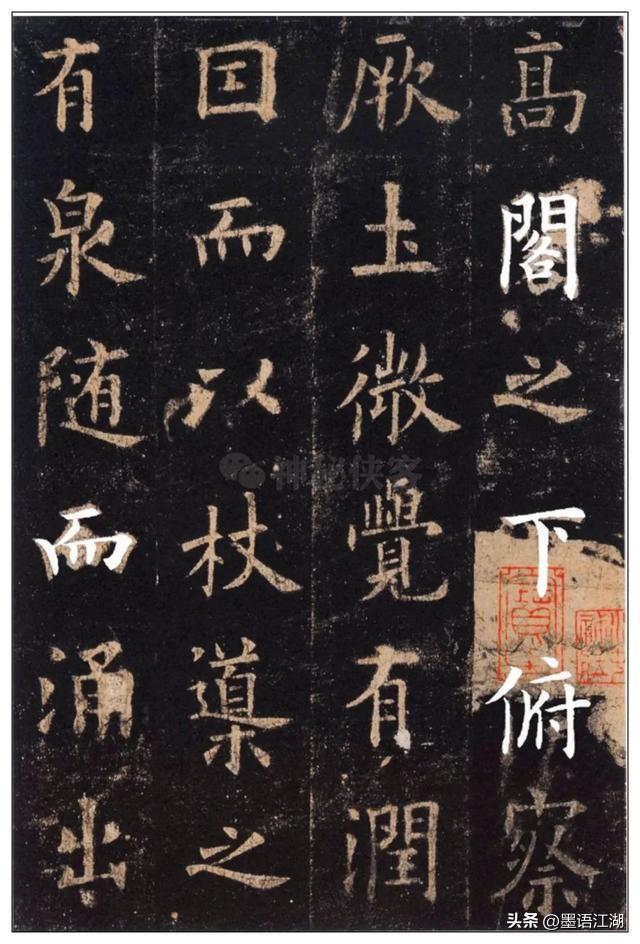 髙閣之下俯察
厥土微覺有潤
因而以杖導之
有泉随而涌出
神秘侠客
头条 @墨语江湖